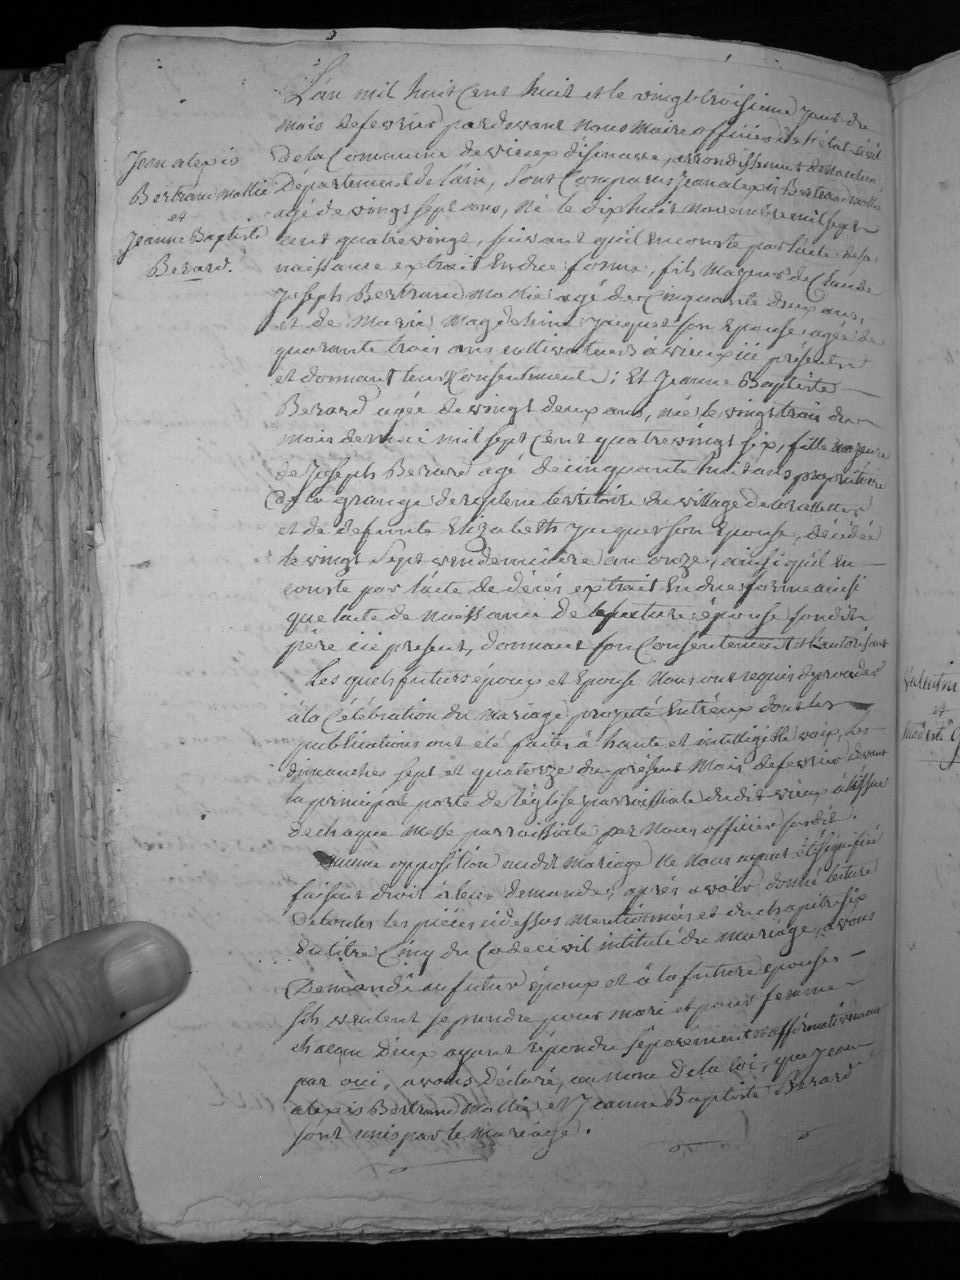 Jean alexis
Bertrand mollie
et
Jeanne Baptiste
Berard.
L'an mil huit Cent huit et le vingt troisieme jour du
mois de fevrier pardevant nous maire officier de l'etat civil
de la Commune de vieux disenave, arrondissement de nantua
Département de lain, sont Comparus Jean alexis Bertrand mollie
agé de vingt sept ans, né le dix huit novembre mil sept
cent quatre vingt, suivant qu'il en conste par l'acte de sa
naissance extrait en due forme, fils mageur de Claude
Joseph Bertrand Mollie agé de Cinquante deux ans,
et de Marie Magdeleine Jacquet son Epouse agée de
quarante trois ans cultivateurs à vieux ici présents
et donnant leur Consentement; Et Jeanne Baptiste
Berard agée de vingt deux ans, née le vingt trois du
mois de mai mil sept Cent quatre vingt six, fille mageure
de Joseph Berard agé de cinquante huit ans propriétaire
de la grange de territoire du village de
et de defunte Elizabeth Jacquet son Epouse, décédée
le vingt sept vendemiaire an onze, ainsi qu'il en
conste par l'acte de décés extrait en due forme ainsi
que l'acte de naissance de la future épouse son dit
père ici présent, donnant son Consentement et l'autorisant
Les quels futurs époux et Epouse nous ont requis de proceder
à la Célébration du mariage projeté Entr'eux dont les
publications ont été faites à haute et intelligible voix, les
dimanches sept et quatorze du présent mois de fevrier devant
la principale porte de l'église parroissiale du dit vieux à l'issue
de chaque Messe parroissiale par nous officier susdit.
aucune opposition audit mariage ne nous ayant été signifiée
faisant droit à leur demande, après avoir donné lecture
de toutes les pièces cidessus mentionnées et du chapitre six
du titre Cinq du Code civil intitulé du mariage, avons
Demandé au futur époux et à la future épouse
s'ils veulent se prendre pour mari et pour femme
chacun d'eux ayant répondu séparément et affirmativement
par oui, avons déclaré, au nom de la loi, que Jean
alexis Bertrand Mollie et Jeanne Baptiste Berard
sont unis par le mariage.
valentin
et